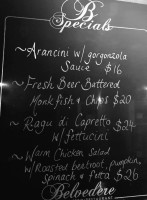 B
Specials
~Arancini w/ gorgonzola
Sauce $16
~Fresh Beer Battered
Monkfish & Chips $20
~Ragu di Capretto $24
w/ fettucini
~Warm Chicken Salad
w/ Roasted beetroot, pumpkin,
spinach & fetta $26
Belvedere
RESTAURANT